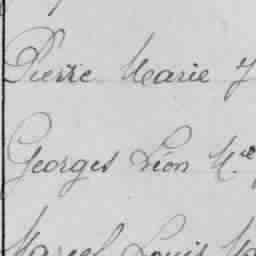 Pierre Marie J
Georges Léon M.ce
Marcel Louis Ma